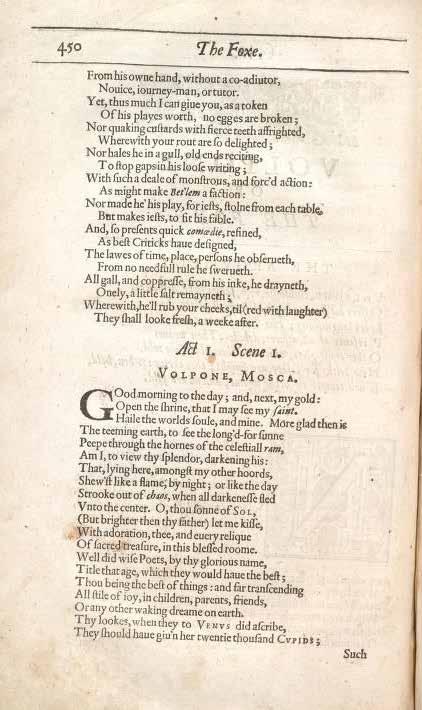 450 The Foxe.
From his owne hand, without a co-adiutor,
Nouice, iourney-man, or tutor.
Yet, thus much I can giue you, as a token
Of his playes worth, no egges are broken;
Nor quaking custards with fierce teeth affrighted,
Wherewith your rout are so delighted;
Nor hales he in a gull, old ends reciting,
To stop gaps in his loose writing;
With such a deale of monstrous, and forc'd action:
As might make Bet'lem a faction:
Nor made he' his play, for iests, stolne from each table,
But makes iests, to fit his fable.
And, so presents quick comœdie, refined,
As best Criticks haue designed,
The lawes of time, place, persons he obserueth,
From no needfull rule he swerueth.
All gall, and coppresse, from his inke, he drayneth,
Onely, a little salt remayneth;
Wherewith, he'll rub your cheeks, til (red with laughter)
They shall looke fresh, a weeke after.
Act 1. Scene 1.
VOLPONE, MOSCA.
GOod morning to the day; and, next, my gold:
Open the shrine, that I may see my saint.
Haile the worlds soule, and mine. More glad then is
The teeming earth, to see the long'd-for sunne
Peepe through the hornes of the celestiall ram,
Am I, to view thy splendor, darkening his:
That, lying here, amongst my other hoords,
Shew'st like a flame, by night; or like the day
Strooke out of chaos, when all darkenesse fled
Vnto the center. O, thou sonne of SOL,
(But brighter then thy father) let me kisse,
With adoration, thee, and euery relique
Of sacred treasure, in this blessed roome.
Well did wise Poets, by thy glorious name,
Title that age, which they would haue the best;
Thou being the best of things: and far transcending
All stile of ioy, in children, parents, friends,
Or any other waking dreame on earth.
Thy lookes, when they to VENVS did ascribe,
They should haue giu'n her twentie thousand CVPIDS;
Such